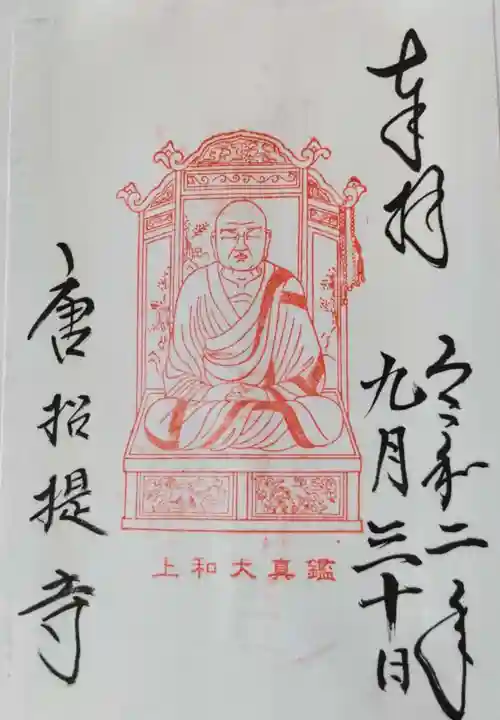 奉拝
令和二年
九月三十日
上和大真鑑
唐招提寺